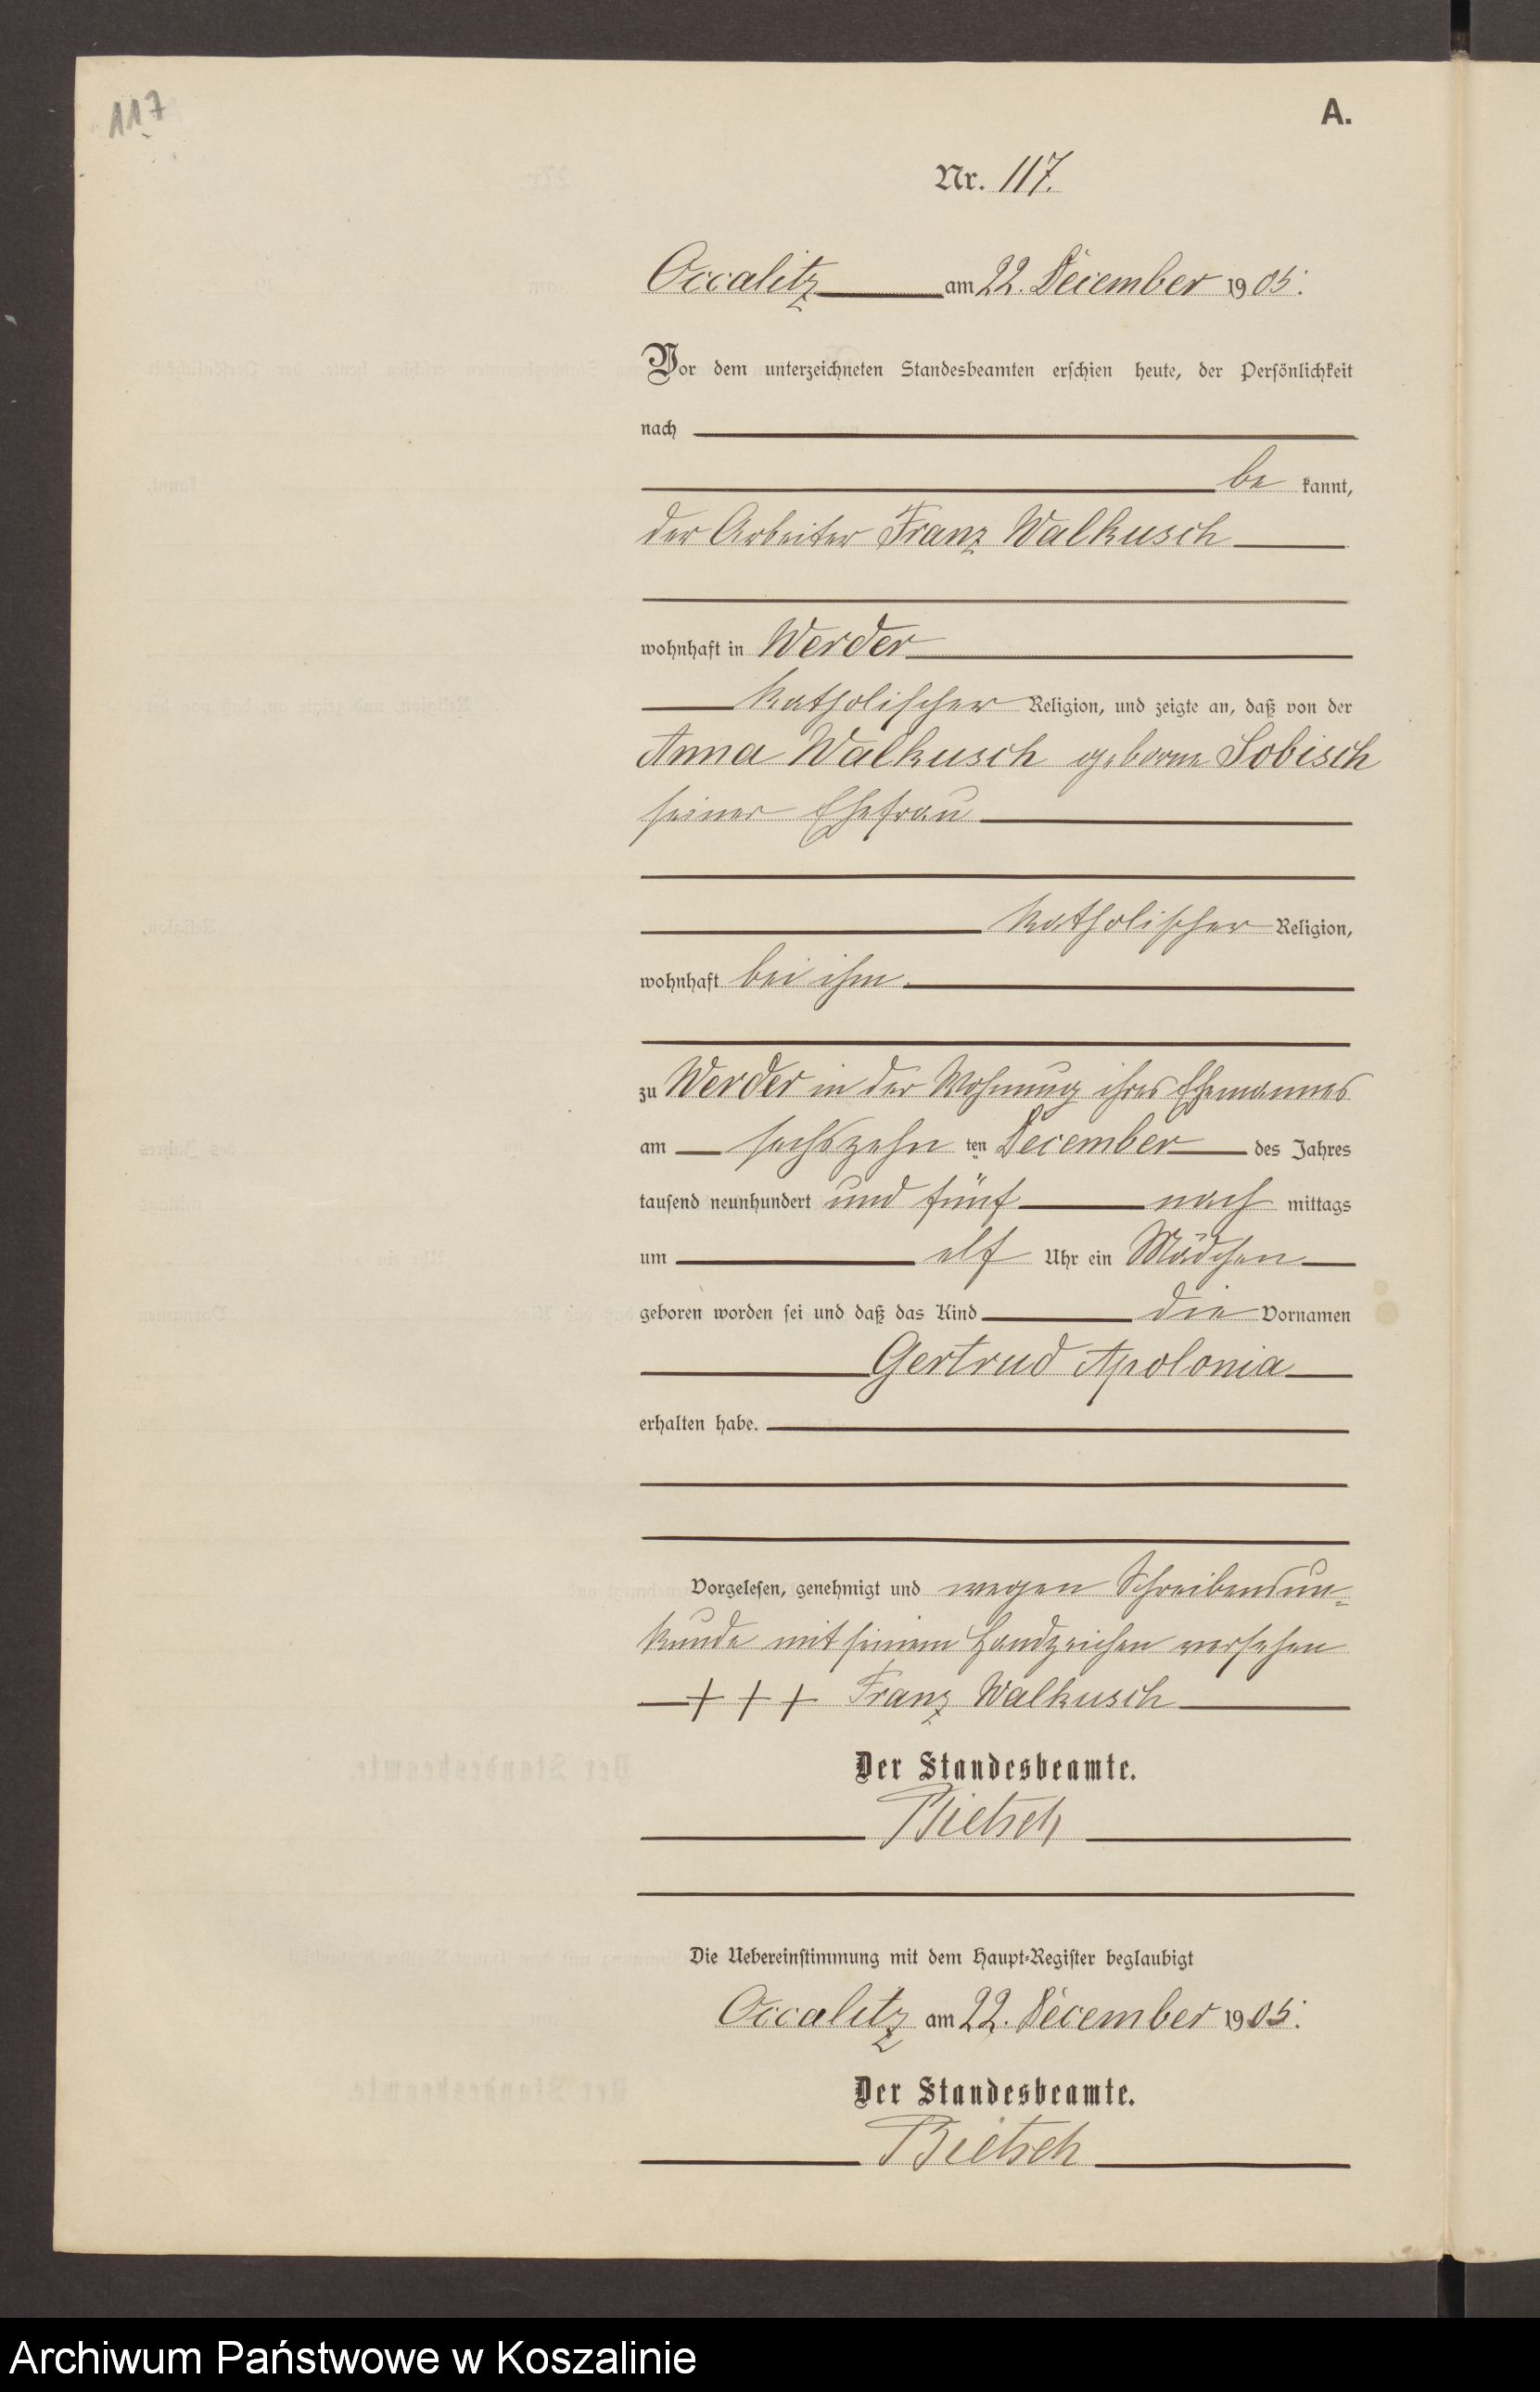 117
A.
Nr. 117.
Occalitz am 22. December 1905.
Vor dem unterzeichneten Standesbeamten erschien heute, der Persönlichkeit
nach
be kannt,
der Arbeiter Franz Walkusch
wohnhaft in Werder
katholischer Religion, und zeigte an, daß von der
Anna Walkusch geborne Sobisch
seiner Ehefrau
katholischer Religion,
wohnhaft bei ihm
zu Werder in der Wohnung ihres Ehemannes
am sechszehn ten December des Jahres
tausend neunhundert und fünf nach mittags
um elf Uhr ein Mädchen
geboren worden sei und daß das Kind die Vornamen
Gertrud Apolonia
erhalten habe.
Vorgelesen, genehmigt und wegen Schreibensun-
kunde mit seinem Handzeichen versehen
+ + + Franz Walkusch
Der Standesbeamte.
Bietsch
Die Uebereinstimmung mit dem Haupt-Register beglaubigt
Occalitz am 22. December 1905.
Der Standesbeamte.
Bietsch
Archiwum Państwowe w Koszalinie